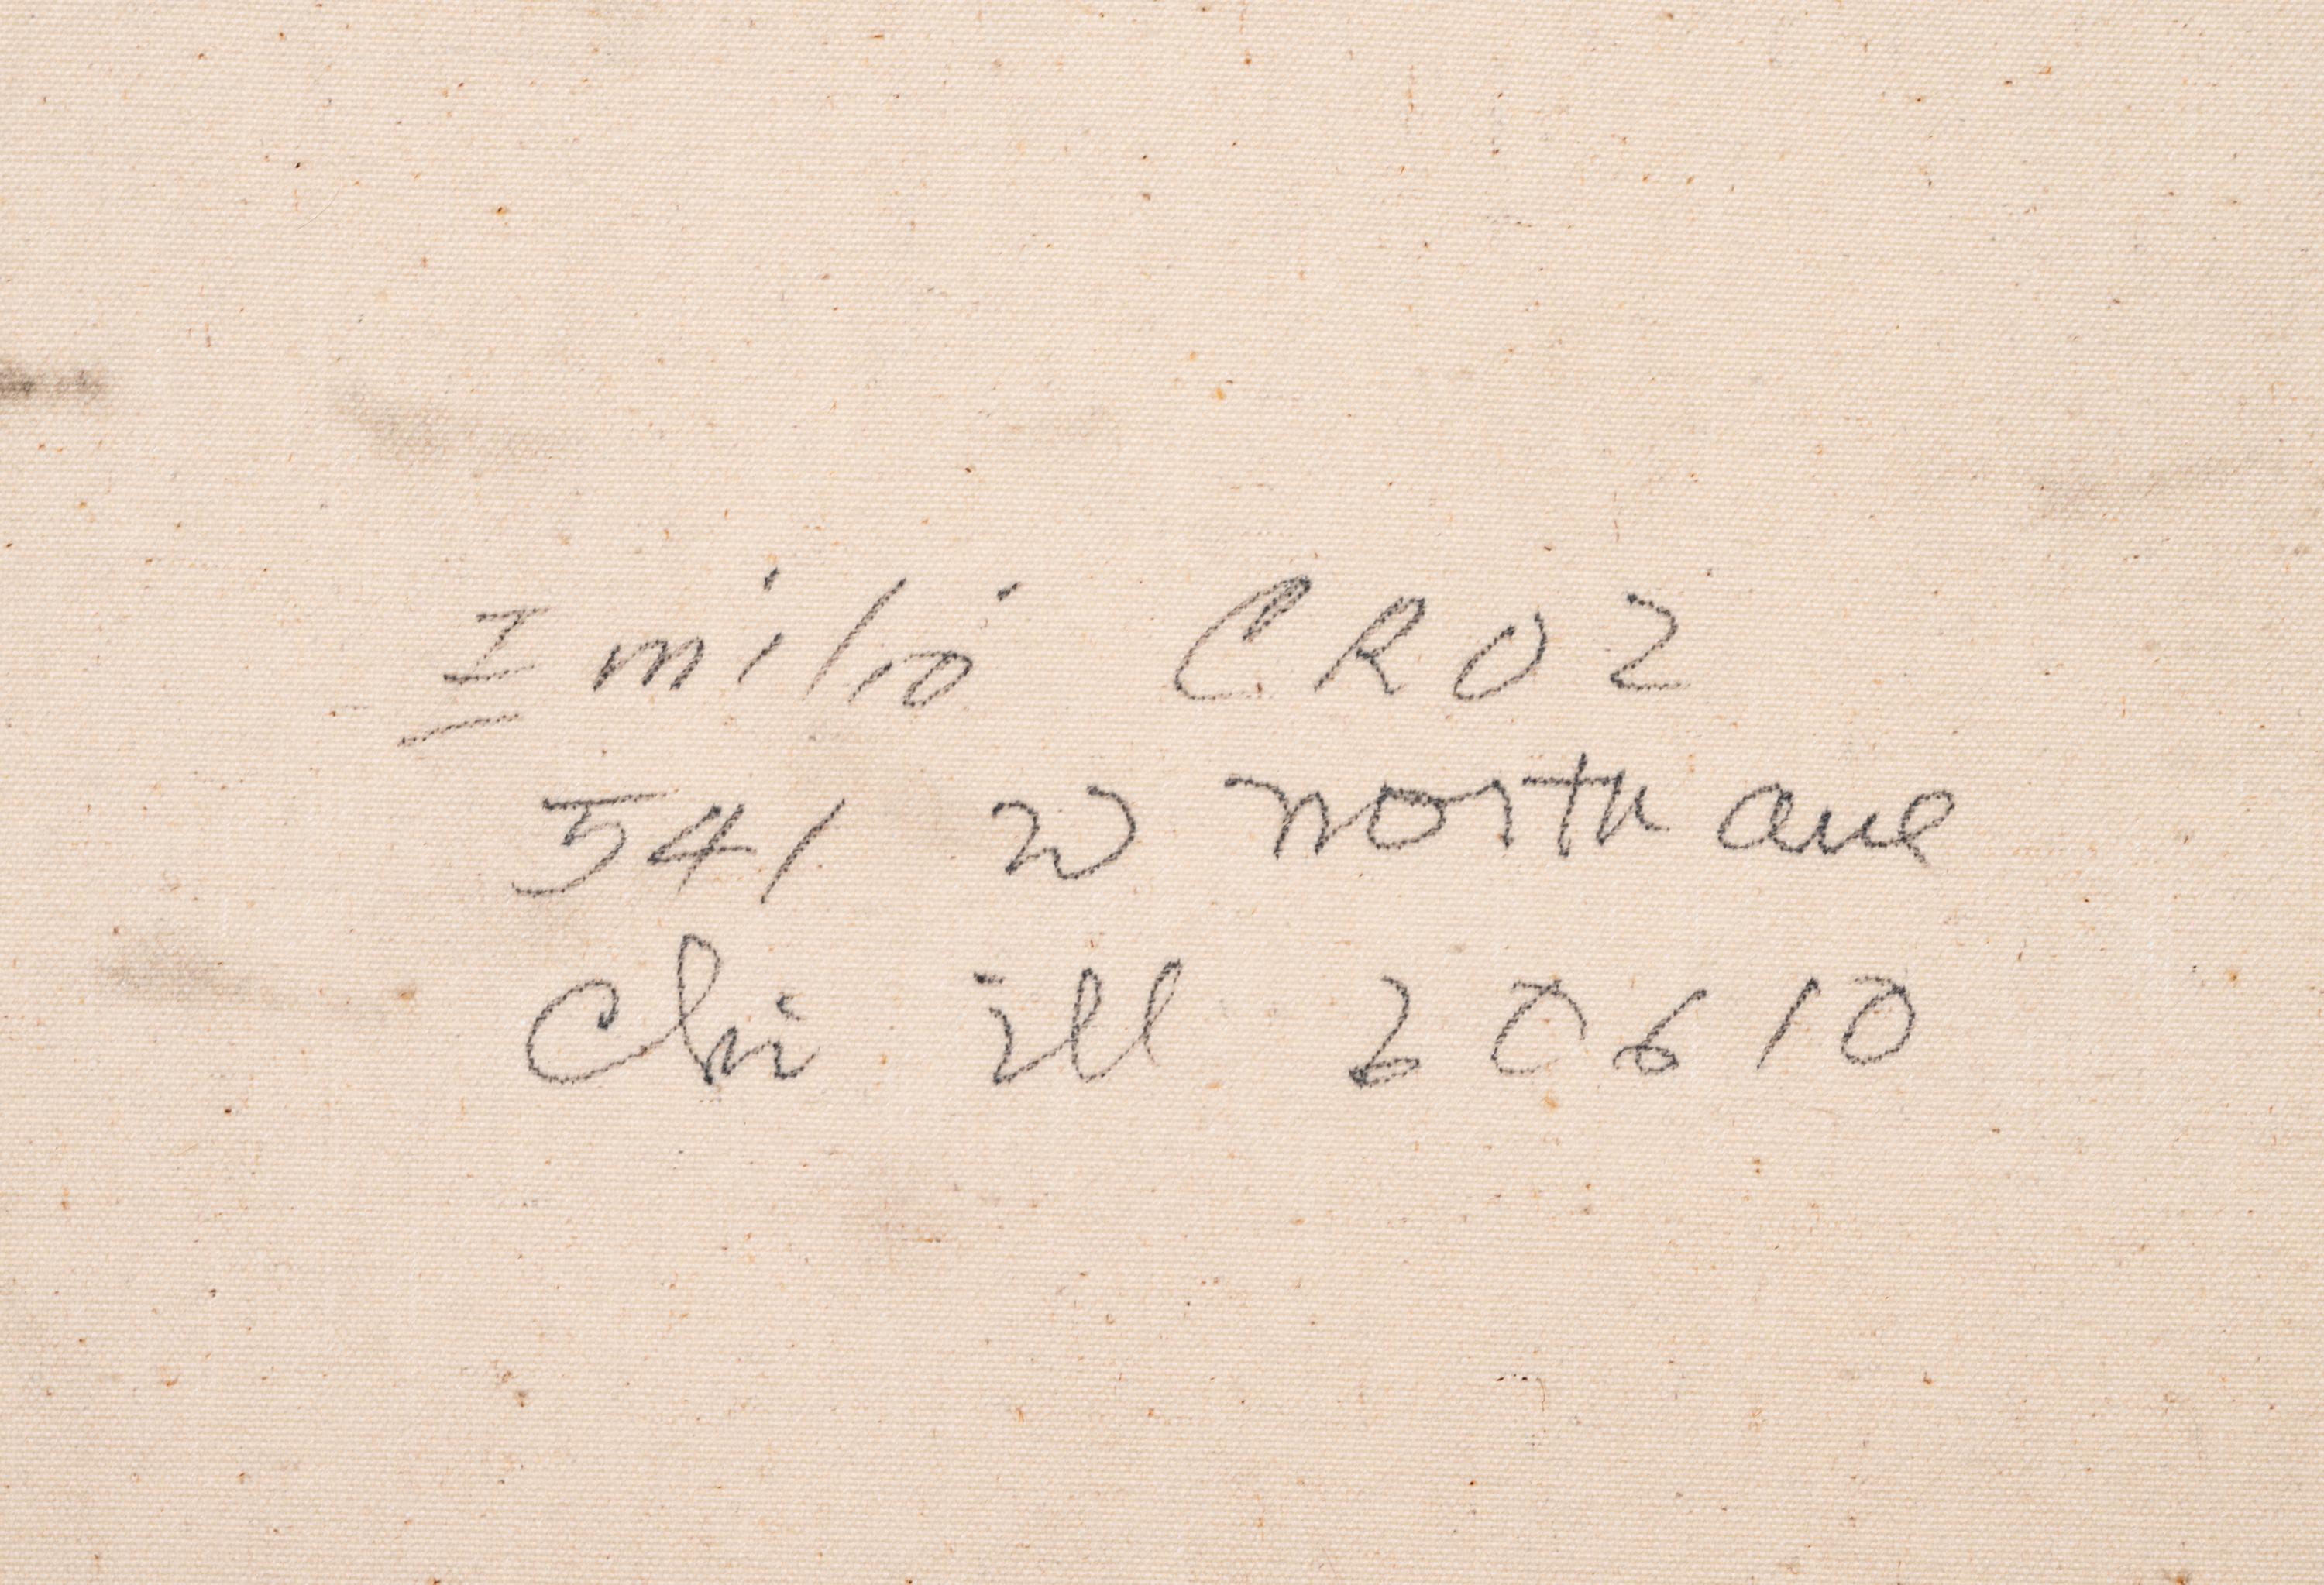 Emilio CROZ
541 W North ave
Chi ill 20610